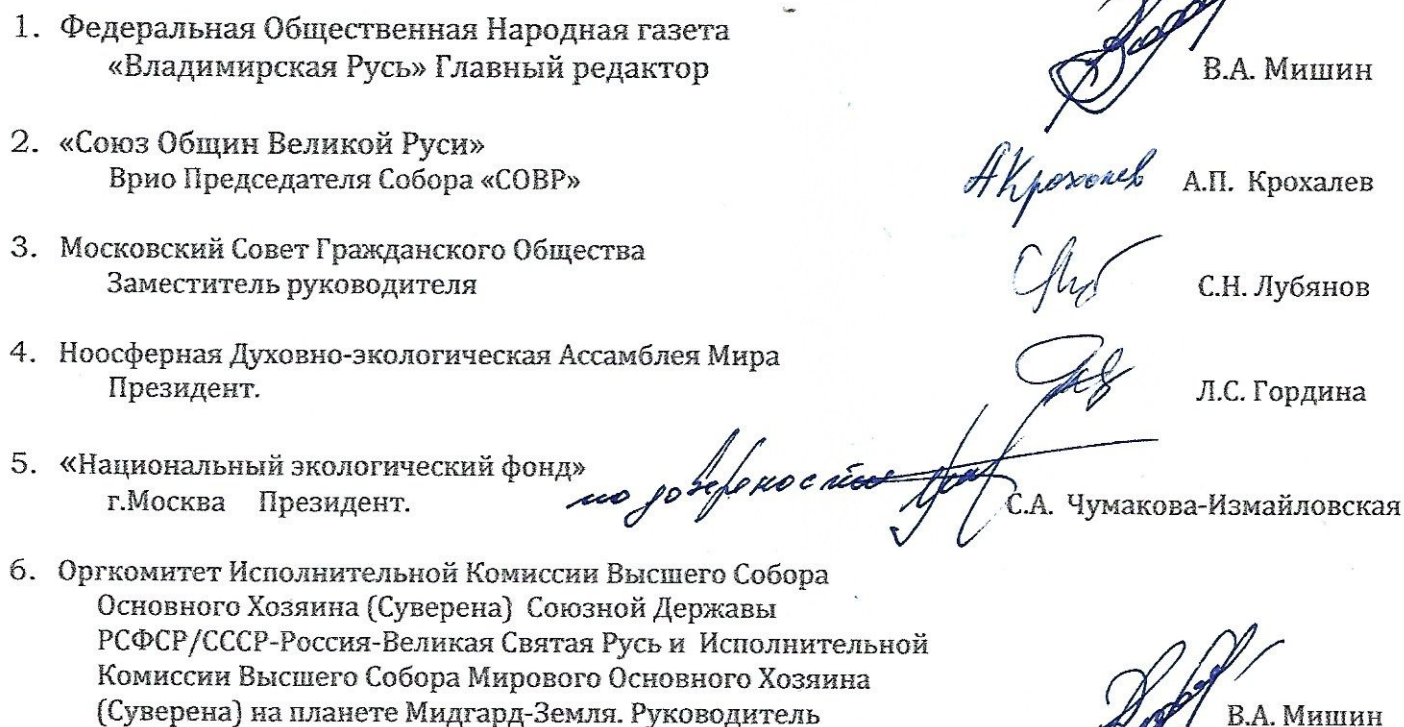 1. Федеральная Общественная Народная газета
«Владимирская Русь» Главный редактор В.А. Мишин
2. «Союз Общин Великой Руси»
Врио Председателя Собора «СОВР» АКрохалев А.П. Крохалев
3. Московский Совет Гражданского Общества
Заместитель руководителя С.Н. Лубянов
4. Ноосферная Духовно-экологическая Ассамблея Мира
Президент. Л.С. Гордина
5. «Национальный экологический фонд»
г.Москва Президент. по доверености С.А. Чумакова-Измайловская
6. Оргкомитет Исполнительной Комиссии Высшего Собора
Основного Хозяина (Суверена) Союзной Державы
РСФСР/СССР-Россия-Великая Святая Русь и Исполнительной
Комиссии Высшего Собора Мирового Основного Хозяина
(Суверена) на планете Мидгард-Земля. Руководитель В.А. Мишин